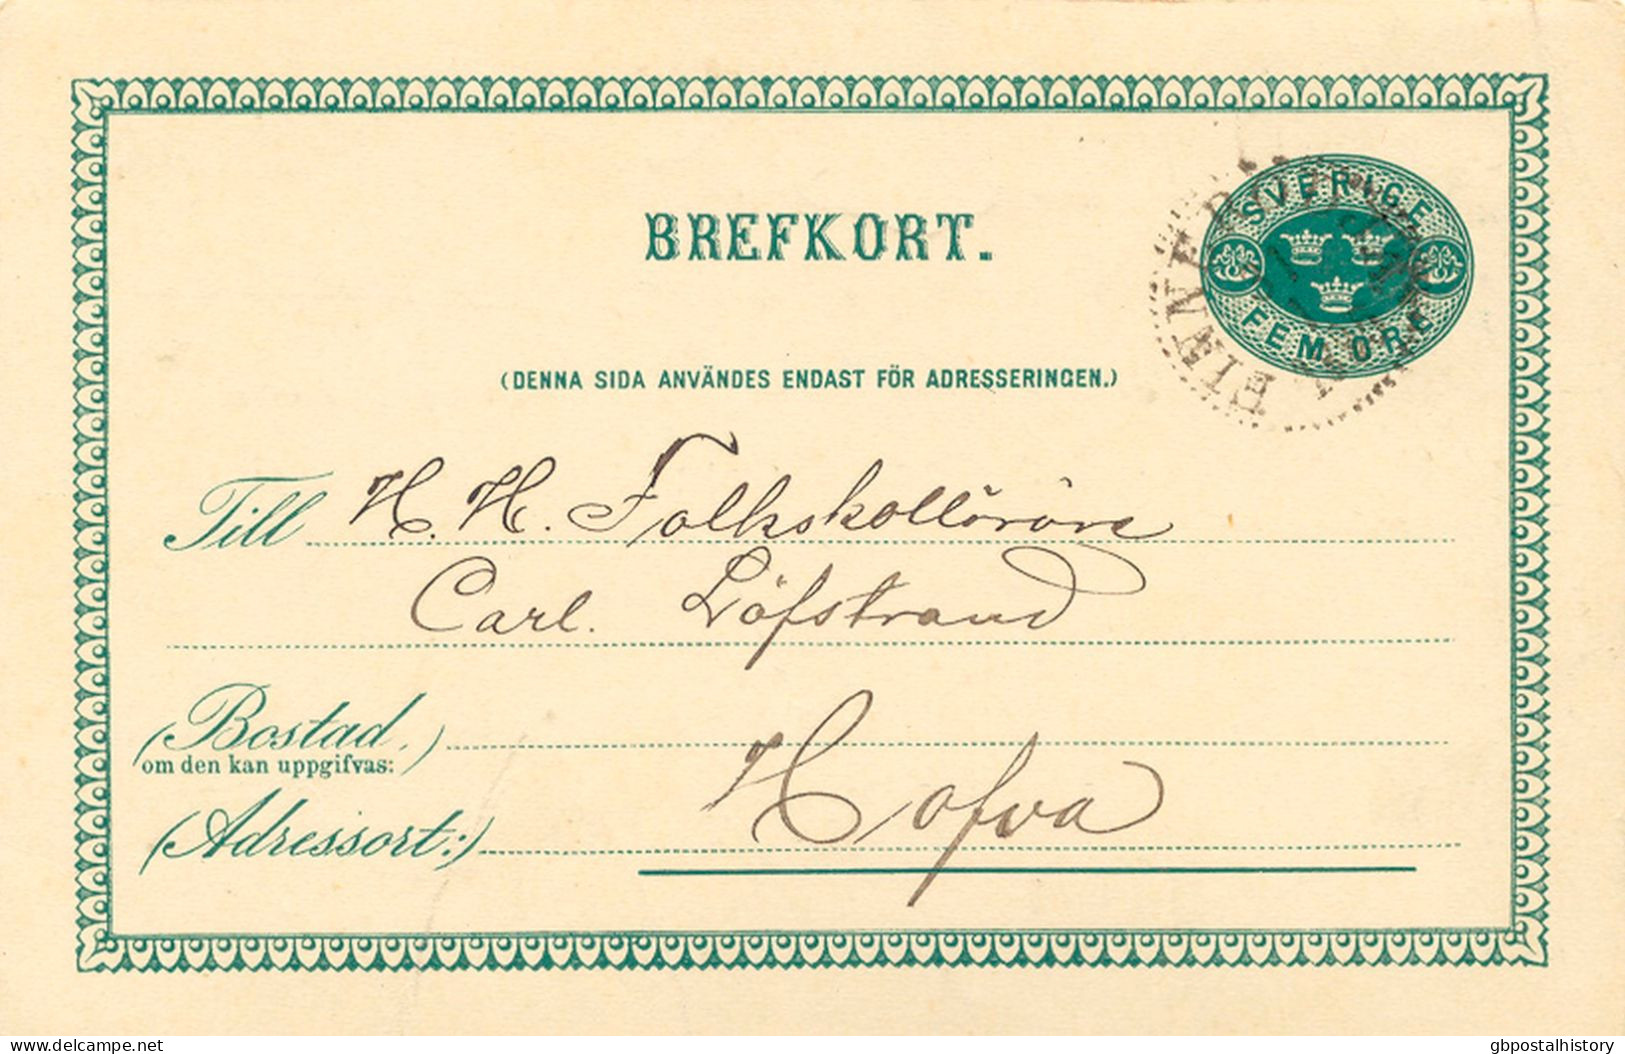 BREFKORT.
SVERIGE
FEM ÖRE
(DENNA SIDA ANVÄNDES ENDAST FÖR ADRESSERINGEN.)
Till H. H. Folkskollärare
Carl. Löfstrand
(Bostad,)
om den kan uppgifvas:
Hofva
(Adressort:)
delcampe.net
gbpostalhistory